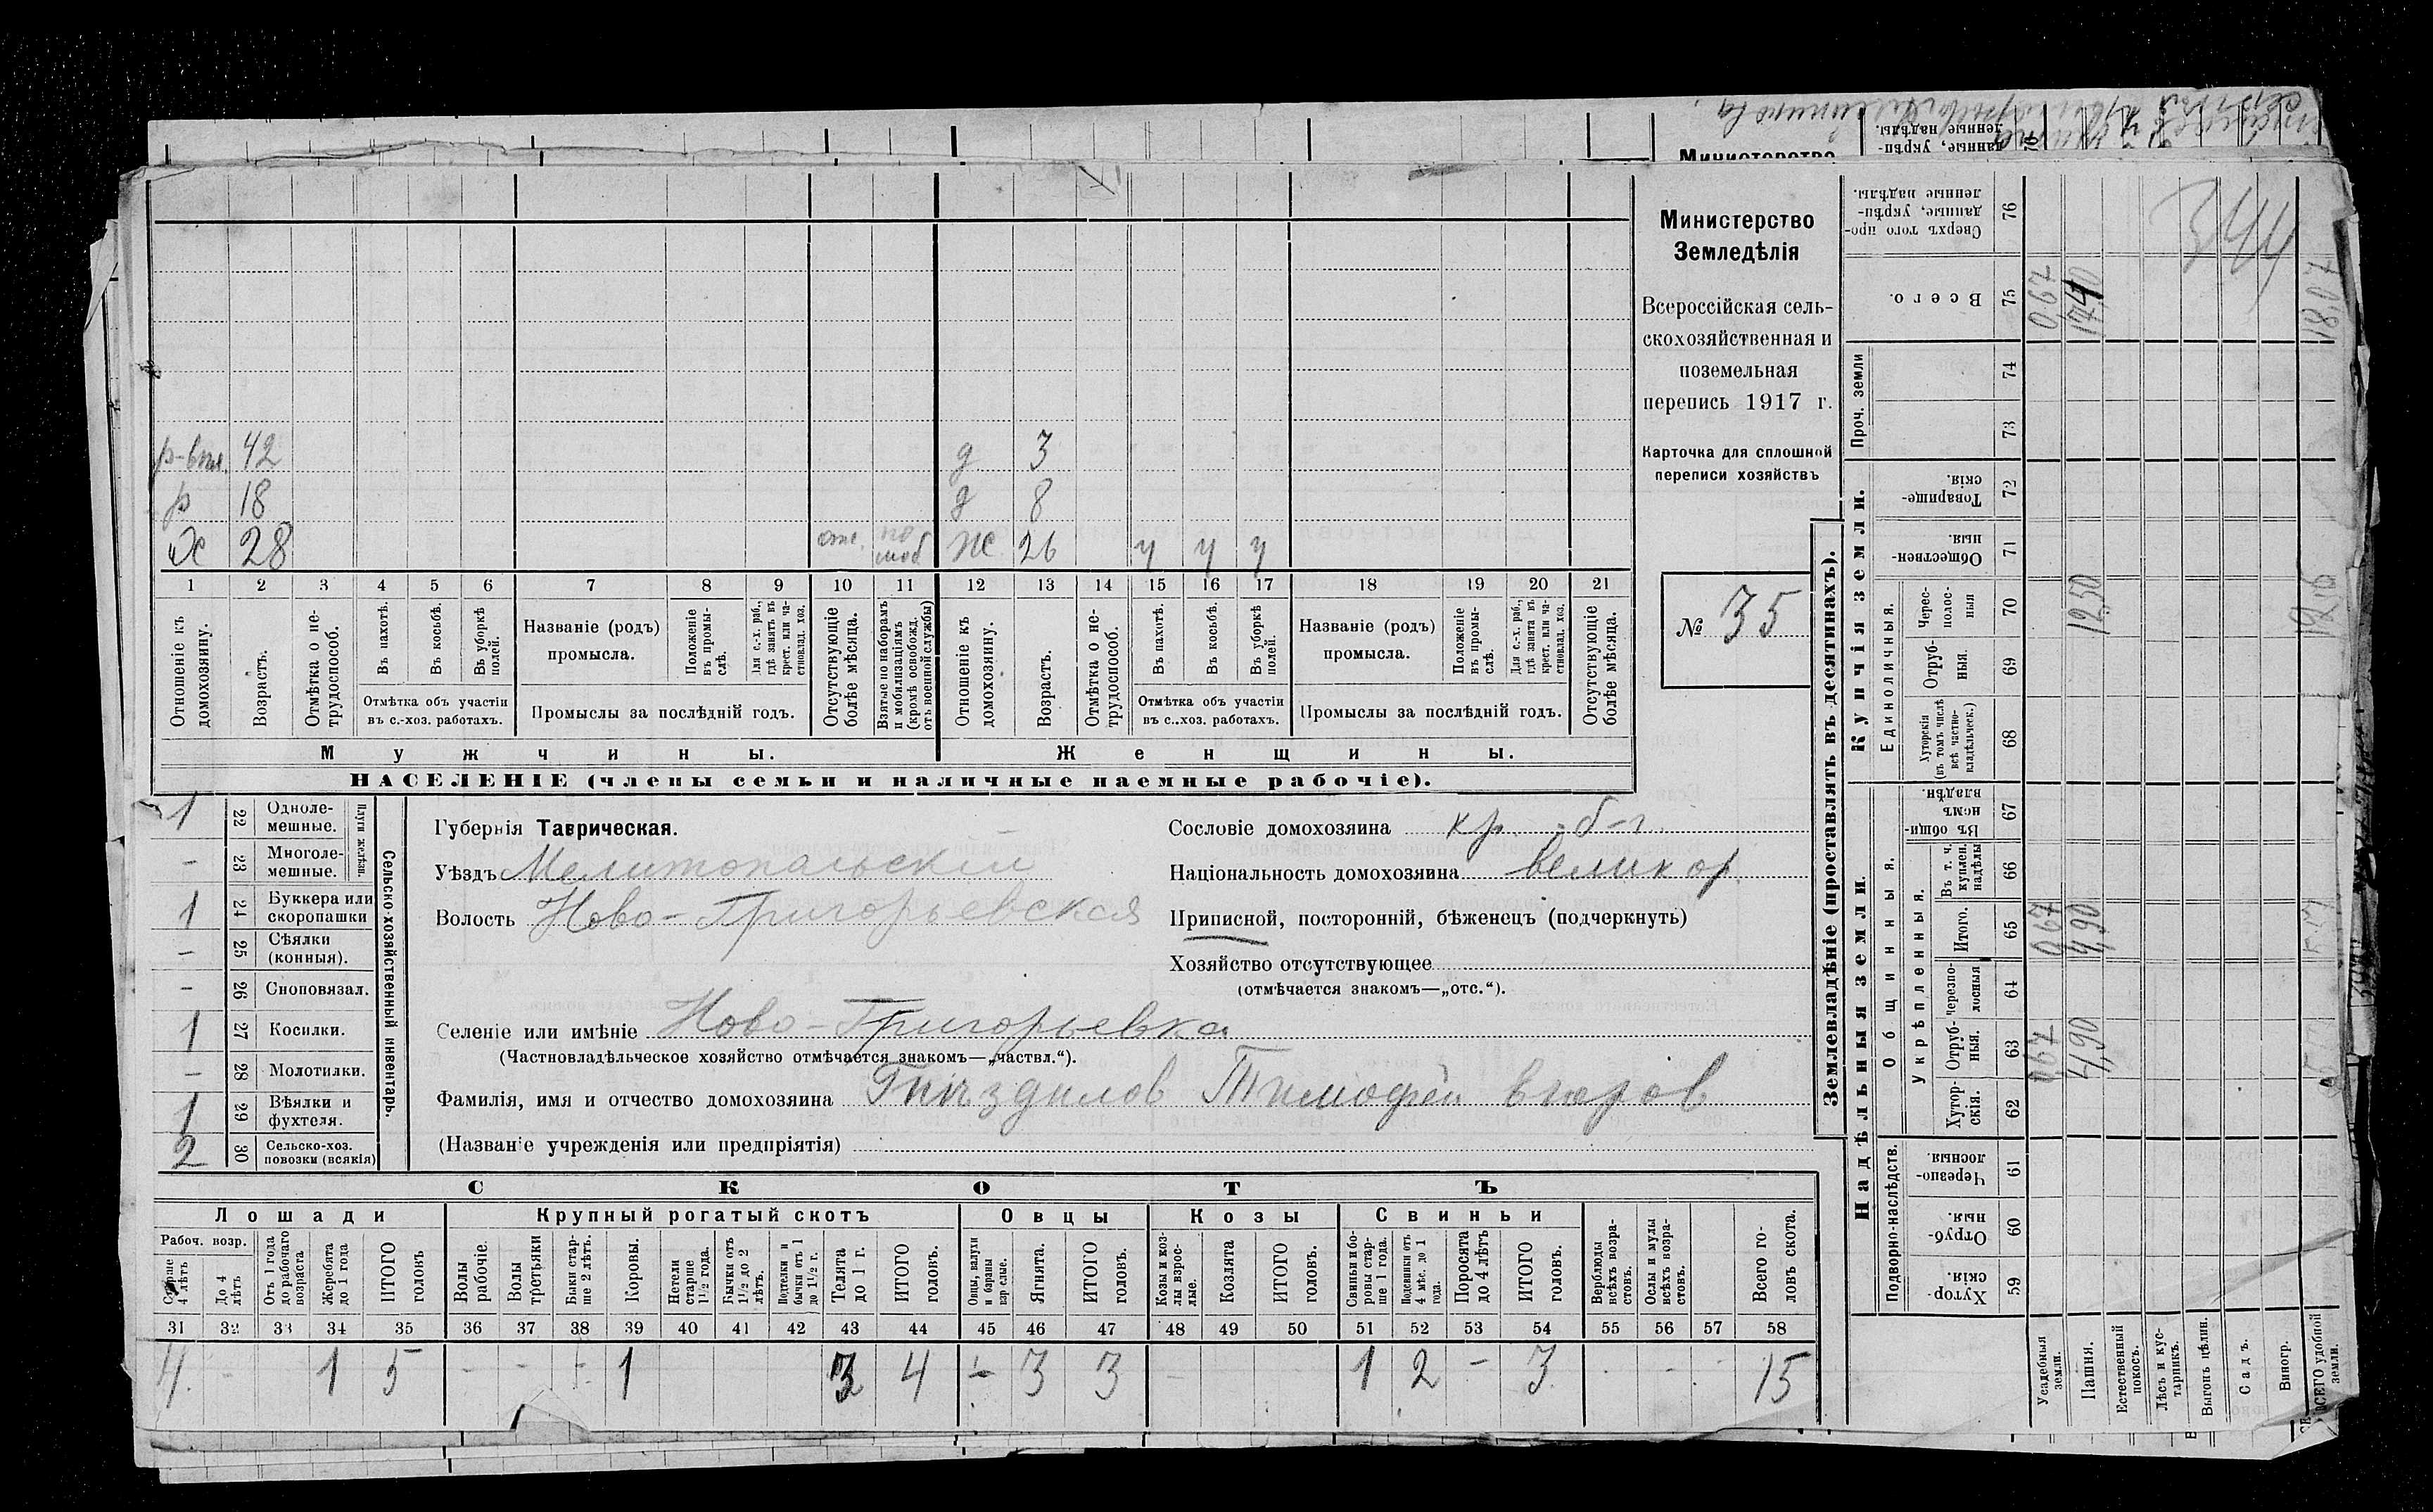 Министерство
Земледѣлія
Всероссійская сель-
скохозяйственная и
поземельная
перепись 1917 г.
Карточка для сплошной
переписи хозяйствъ
№ 35
р-впл. 42 д 3
р 18 д 8
Х 28 отс. по моб ж 26 ч ч ч
1 2 3 4 5 6 7 8 9 10 11 12 13 14 15 16 17 18 19 20 21
Отношеніе къ домохозяину.
Возрастъ.
Отмѣтка о не-трудоспособ.
Въ пахотѣ.
Въ косьбѣ.
Въ уборкѣ полей.
Отмѣтка объ участіи
въ с.-хоз. работахъ.
Названіе (родъ)
промысла.
Положеніе въ промы-слѣ.
Для с.-х. раб., гдѣ занятъ въ крест. или ча-стновлад. хоз.
Промыслы за послѣдній годъ.
Отсутствующіе болѣе мѣсяца.
Взятые по наборамъ и мобилизаціямъ (кромѣ освобожд. отъ военной службы)
Отношеніе къ домохозяину.
Возрастъ.
Отмѣтка о не-трудоспособ.
Въ пахотѣ.
Въ косьбѣ.
Въ уборкѣ полей.
Отмѣтка объ участіи
въ с..хоз. работахъ.
Названіе (родъ)
промысла.
Положеніе въ промы-слѣ.
Для с.-х. раб., гдѣ занята въ крест. или ча-стновлад. хоз.
Промыслы за послѣдній годъ.
Отсутствующіе болѣе мѣсяца.
Мужчины. Женщины.
НАСЕЛЕНІЕ (члены семьи и наличные наемные рабочіе).
1 22 Одноле-мешные.
- 23 Многоле-мешные.
Плуги желѣзн.
1 24 Буккера или скоропашки
- 25 Сѣялки (конныя).
- 26 Сноповязал.
1 27 Косилки.
- 28 Молотилки.
1 29 Вѣялки и фухтеля.
2 30 Сельско-хоз. повозки (всякія)
Сельско-хозяйственный инвентарь.
Губернія Таврическая.
Уѣздъ Мелитопольскій
Волость Ново-Григорьевская
Сословіе домохозяина кр. б-г.
Національность домохозяина великор.
Приписной, посторонній, бѣженецъ (подчеркнуть)
Хозяйство отсутствующее
(отмѣчается знакомъ—„отс.“).
Селеніе или имѣніе Ново-Григорьевка
(Частновладѣльческое хозяйство отмѣчается знакомъ—„частвл.“).
Фамилія, имя и отчество домохозяина Гнѣздилов Тимофей
(Названіе учрежденія или предпріятія)
СКОТЪ
Лошади Крупный рогатый скотъ Овцы Козы Свиньи
Рабоч. возр.
Старше 4 лѣтъ
До 4 лѣтъ
Отъ 1 года до рабочаго возраста
Жеребята до 1 года
ИТОГО головъ
Волы рабочіе.
Волы третьяки
Быки стар-ше 2 лѣтъ.
Коровы.
Нетели старше 1½ года.
Бычки отъ 1½ до 2 лѣтъ.
Подтелки и бычки отъ 1 до 1½ г.
Телята до 1 г.
ИТОГО головъ.
Овцы, валухи и бараны взрослые.
Ягнята.
ИТОГО головъ.
Козы и коз-лы взрос-лые.
Козлята
ИТОГО головъ.
Свиньи и бо-ровы стар-ше 1 года.
Подсвинки отъ 4 мѣс. до 1 года.
Поросята до 4 лѣтъ
ИТОГО головъ.
Верблюды всѣхъ возра-стовъ.
Ослы и мулы всѣхъ возра-стовъ.
Всего го-ловъ скота.
31 32 33 34 35 36 37 38 39 40 41 42 43 44 45 46 47 48 49 50 51 52 53 54 55 56 57 58
4. - 1 5 - - - 1 3 4 - 3 3 - - 1 2 - 3 - - - 15
Землевладѣніе (проставлять въ десятинахъ).
Купчія земли.
Надѣльныя земли.
Сверхъ того про-данные, укрѣп-ленные надѣлы. 76
Всего. 75 0,67 17,40 18,07
Проч. земли 74 73
Товарище-скія. 72
Обществен-ныя. 71
Единоличныя.
Черес-полос-ныя 70 12,50
Отруб-ныя. 69
Хуторскія (въ томъ числѣ всѣ частно-владѣльческ.) 68
Общинныя.
Въ общи-номъ владѣн. 67
Укрѣпленныя.
Въ т. ч. куплен. надѣлы 66
Итого. 65 0,67 4,90
Черезпо-лосныя 64
Отруб-ныя. 63 0,67 4,90
Хутор-скія. 62
Подворно-наслѣдств.
Черезпо-лосныя. 61
Отруб-ныя. 60
Хутор-скія. 59
Усадебныя земли.
Пашня.
Естественный покосъ.
Лѣсъ и кус-тарникъ.
Выгонъ цѣлин.
Садъ.
Виногр.
ВСЕГО удобной земли.
344